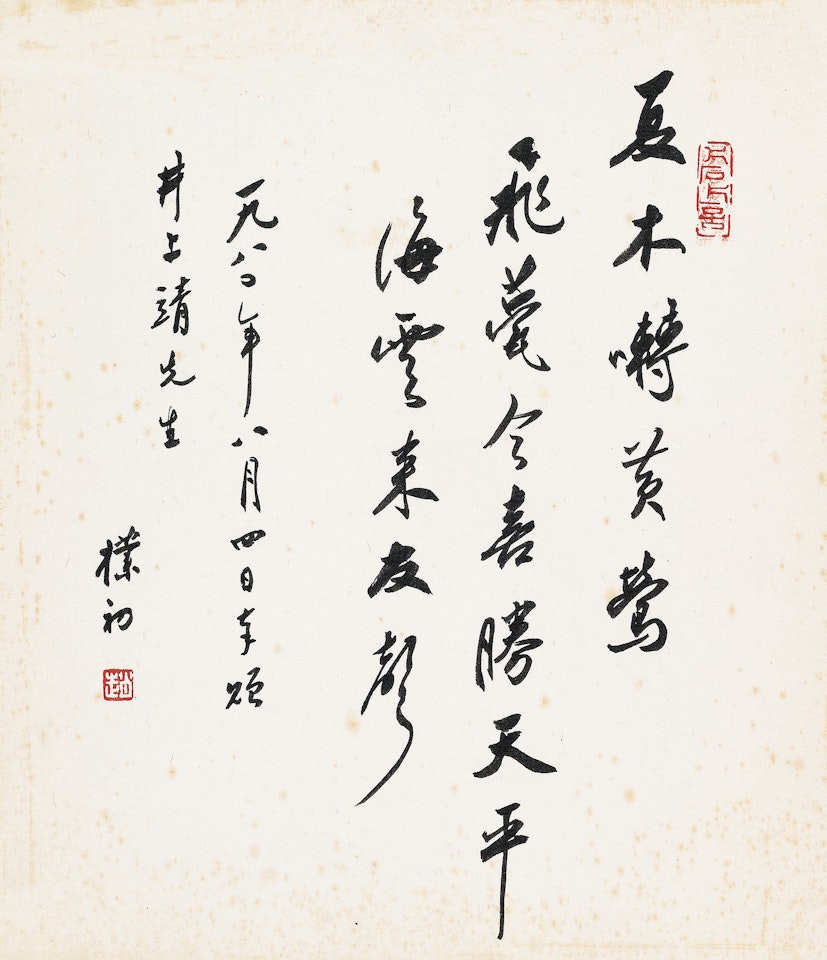 夏木囀黄鶯
飛甍今喜勝天平
海雲来友聲
一九八〇年八月四日奉頌
井上靖先生
樸初
趙